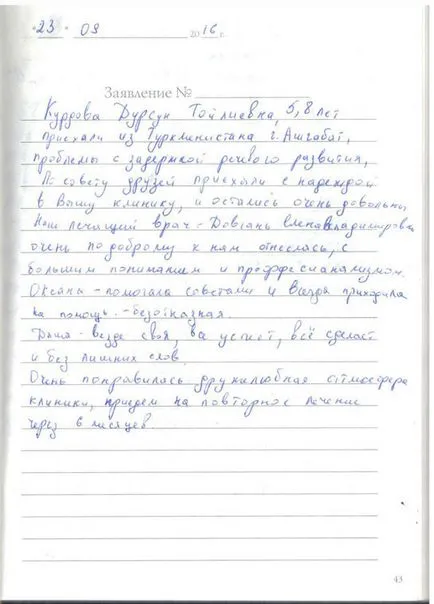 "23" 09 2016 г.
Заявление №
Курдова Дурсун Тойлиевна, 5,8 лет
приехали из Туркменистана г. Ашгабат,
проблемы с задержкой речевого развития,
По совету друзей приехали с надеждой
в Вашу клинику, и остались очень довольны
Наш лечащий врач - Довгань Елена Владимировна
очень по доброму к нам отнеслась, с
большим пониманием и проффесианализмом.
Оксана - помогала советами и всегда приходила
на помощь - безотказная.
Даша - везде своя, успеет, всё сделает
и без лишних слов.
Очень понравилась дружилюбная атмосфера
клиники, приедем на повторное лечение
через 6 месяцев.
43